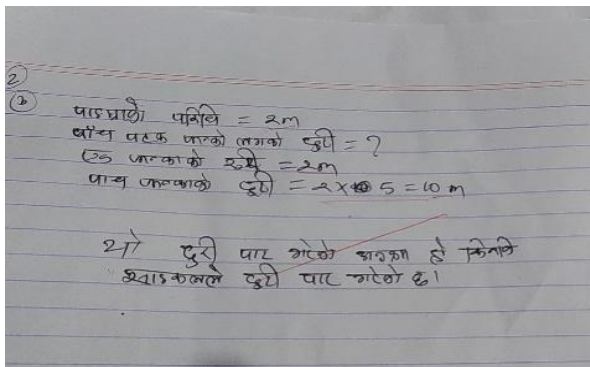 2
पाङग्राको परिधि = 2m
पाँच पटक फन्को लगाको दुरी = ?
एक फन्काको दुरी = 2m
पाच फन्काको दुरी = 2 × 5 = 10 m
यो दुरी पार गरेको अवस्था हो किनकि
साइकलले दुरी पार गरेको छ।